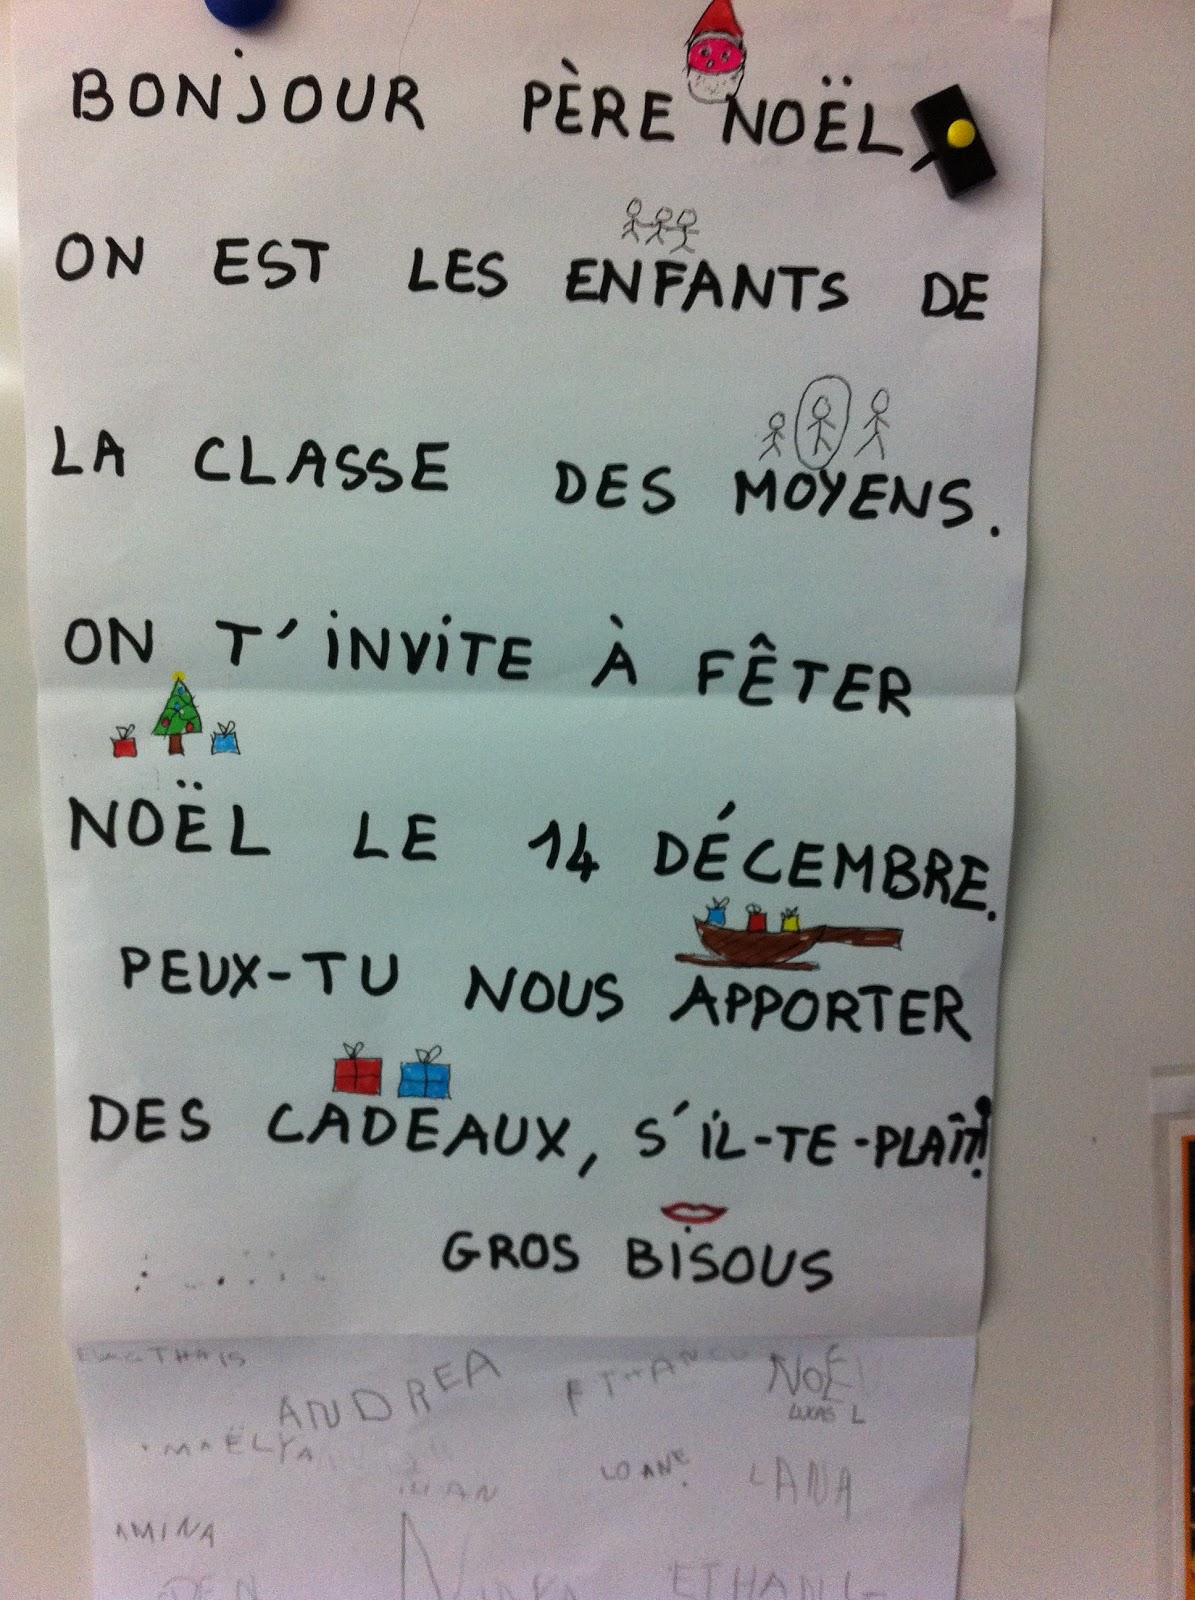 BONJOUR PÈRE NOËL,
ON EST LES ENFANTS DE
LA CLASSE DES MOYENS.
ON T'INVITE À FÊTER
NOËL LE 14 DÉCEMBRE.
PEUX-TU NOUS APPORTER
DES CADEAUX, S'IL-TE-PLAÎT!
GROS BISOUS
THAIS
ANDREA NOÉ
LUCAS L
MAËLYA LOANE LANA
AMINA